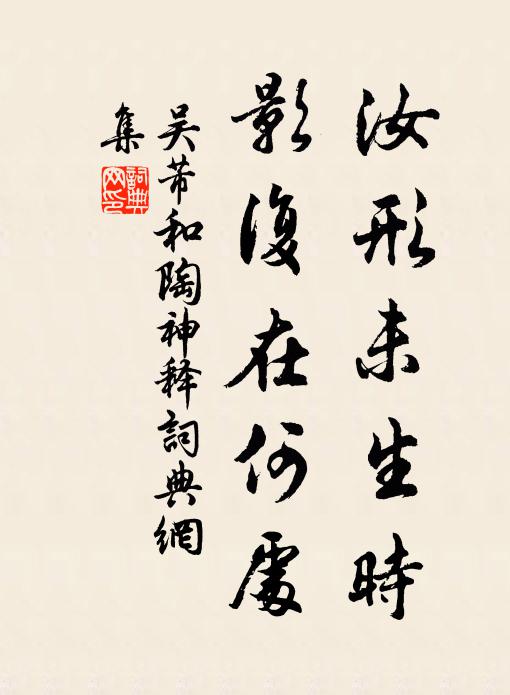 汝形未生時
影復在何處
吴芾和陶神释詞典網
集
詞典網印